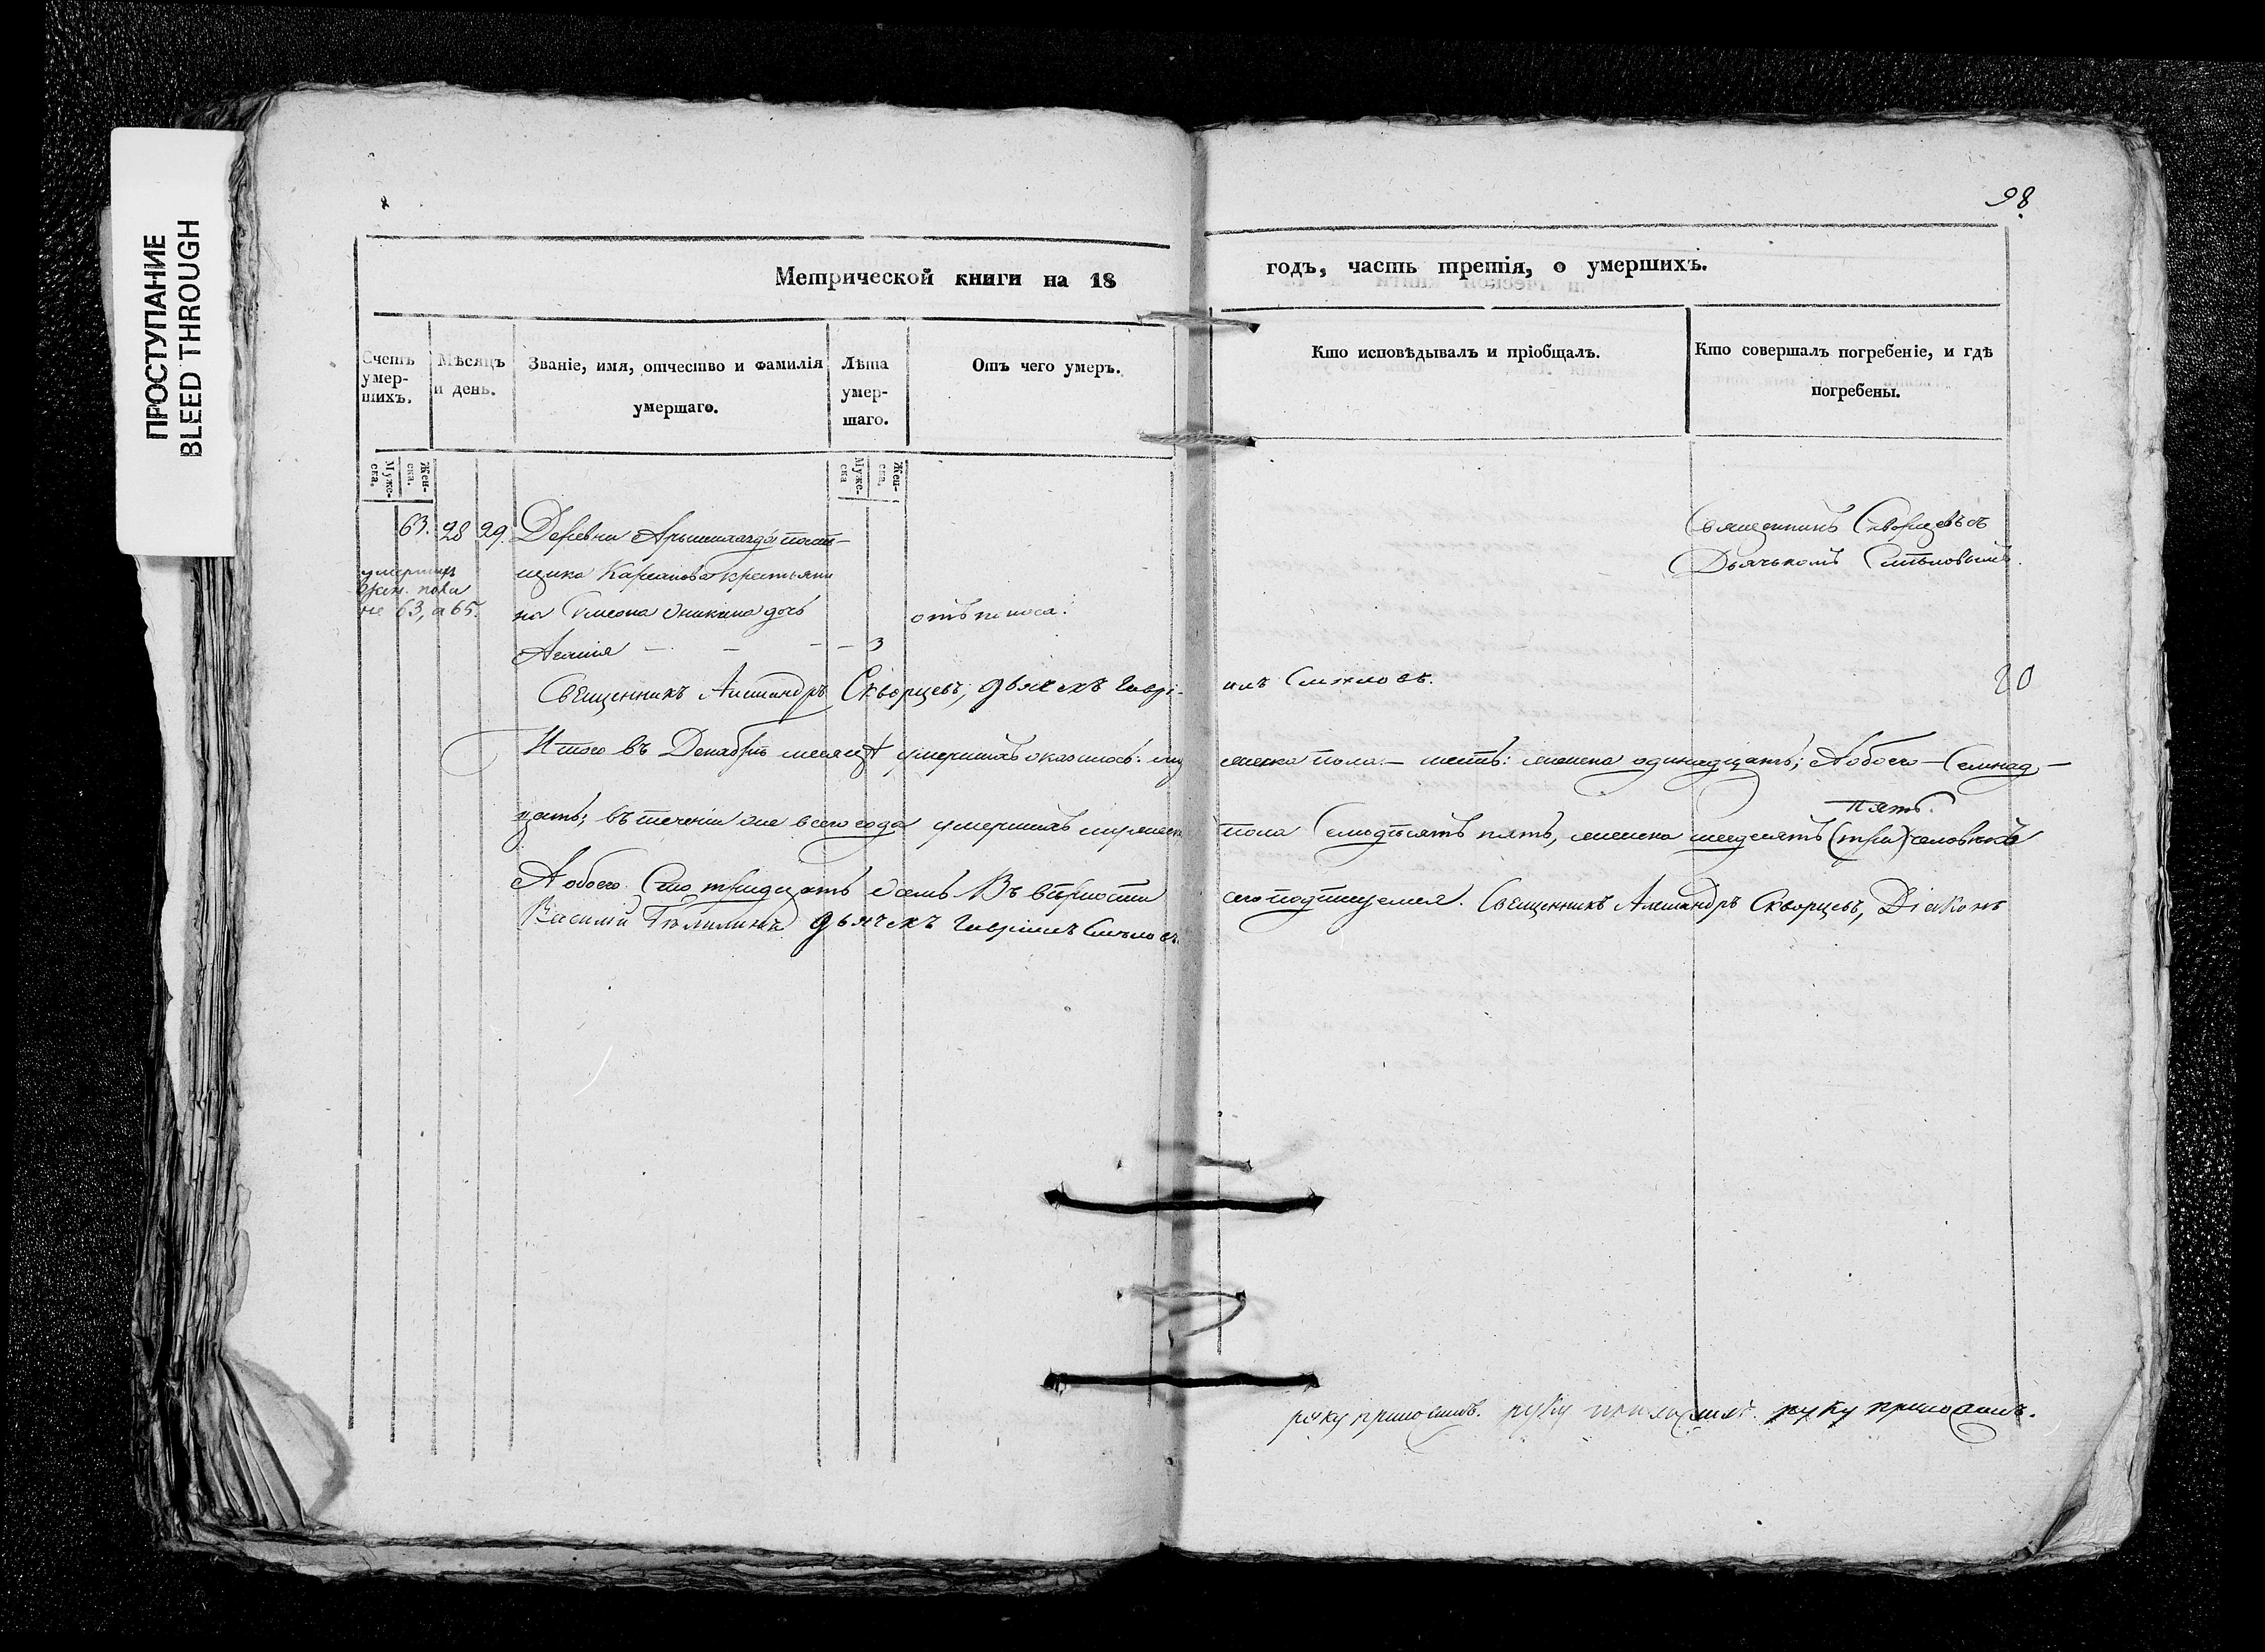 ПРОСТУПАНИЕ
BLEED THROUGH
98
Метрической книги на 18
годъ, часть третія, о умершихъ.
Счетъ умер-
шихъ.
Мѣсяцъ
и день.
Званіе, имя, отчество и фамилія
умершаго.
Лѣта
умер-
шаго.
Отъ чего умеръ.
Кто исповѣдывалъ и пріобщалъ.
Кто совершалъ погребеніе, и гдѣ
погребены.
Муже-
ска.
Жен-
ска.
Муже-
ска
Жен-
ска.
63. 28 29. Деревни помѣ-
щика крестьяни
на Симеона дочь
3
отъ поноса.
Священникъ Скворцевъ съ
Дьячькомъ Смѣловымъ.
умершихъ
жен. пола
не 63, а 65.
Священникъ Александръ Скворцевъ, дьячекъ Гаврі-
илъ Смѣловъ.
20
Итого въ Декабрѣ месяцѣ умершихъ оказалось: му
жеска пола – шесть: женска одинадцать; А обоего – Семнад-
цать; въ теченіи же всего года умершихъ мужеска
пола Семдѣсятъ пять, женска шесдесятъ (три) человѣкъ
пять.
А обоего Сто тридцать осемь Въ вѣрности
сего подписуемся. Священникъ Александръ Скворцевъ, Діаконъ
Василій дьячекъ Гавріилъ Смѣловъ
руку приложилъ. руку приложилъ. руку приложилъ.